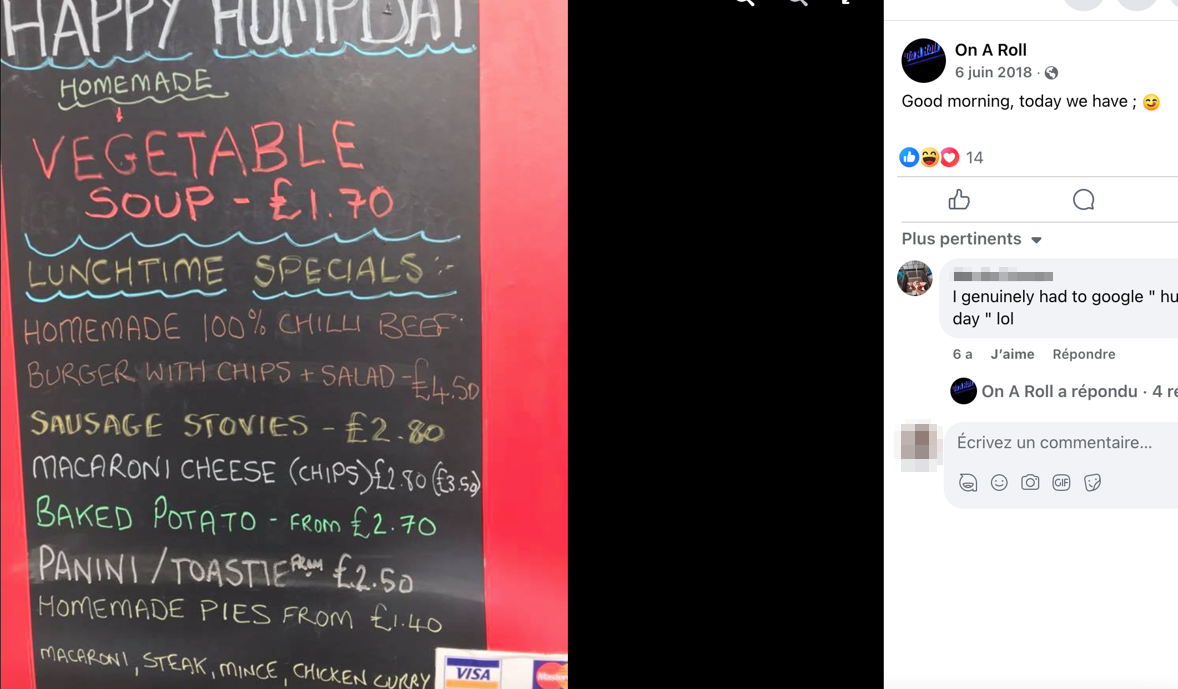 HAPPY HUMPDAY
HOMEMADE
VEGETABLE
SOUP - £1.70
LUNCHTIME SPECIALS:-
HOMEMADE 100% CHILLI BEEF
BURGER WITH CHIPS + SALAD - £4.50
SAUSAGE STOVIES - £2.80
MACARONI CHEESE (CHIPS) £2.80 (£3.50)
BAKED POTATO - FROM £2.70
PANINI / TOASTIE FROM £2.50
HOMEMADE PIES FROM £1.40
MACARONI, STEAK, MINCE, CHICKEN CURRY
VISA
Master
On A Roll
On A Roll
6 juin 2018 ·
Good morning, today we have ; 😊
14
Plus pertinents
I genuinely had to google " hu
day " lol
6 a J'aime Répondre
On A Roll a répondu · 4 ré
Écrivez un commentaire...
GIF